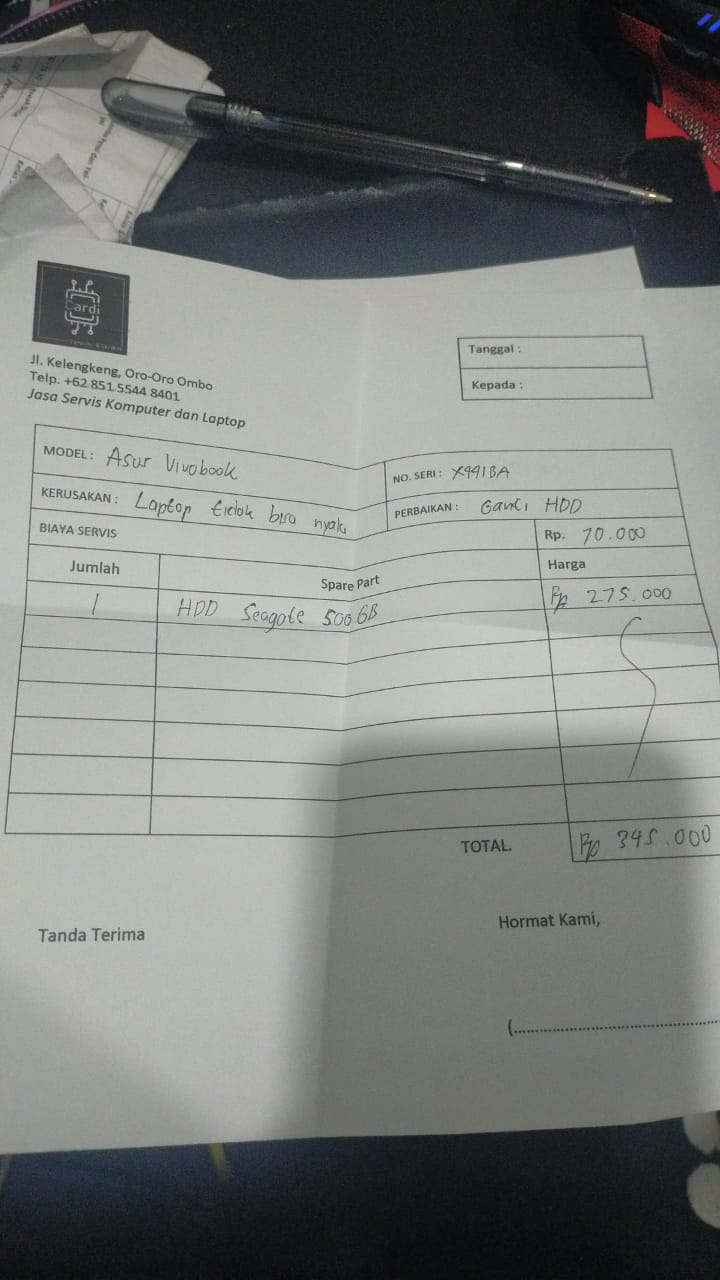 Cardi
Jl. Kelengkeng, Oro-Oro Ombo
Telp. +62 851 5544 8401
Jasa Servis Komputer dan Laptop
Tanggal :
Kepada :
MODEL : Asus Vivobook
NO. SERI : X441BA
KERUSAKAN : Laptop tidak bisa nyala
PERBAIKAN : Ganti HDD
BIAYA SERVIS Rp. 70.000
Jumlah Spare Part Harga
1 HDD Seagate 500GB Rp 275.000
TOTAL. Rp 345.000
Tanda Terima
Hormat Kami,
(....................................................